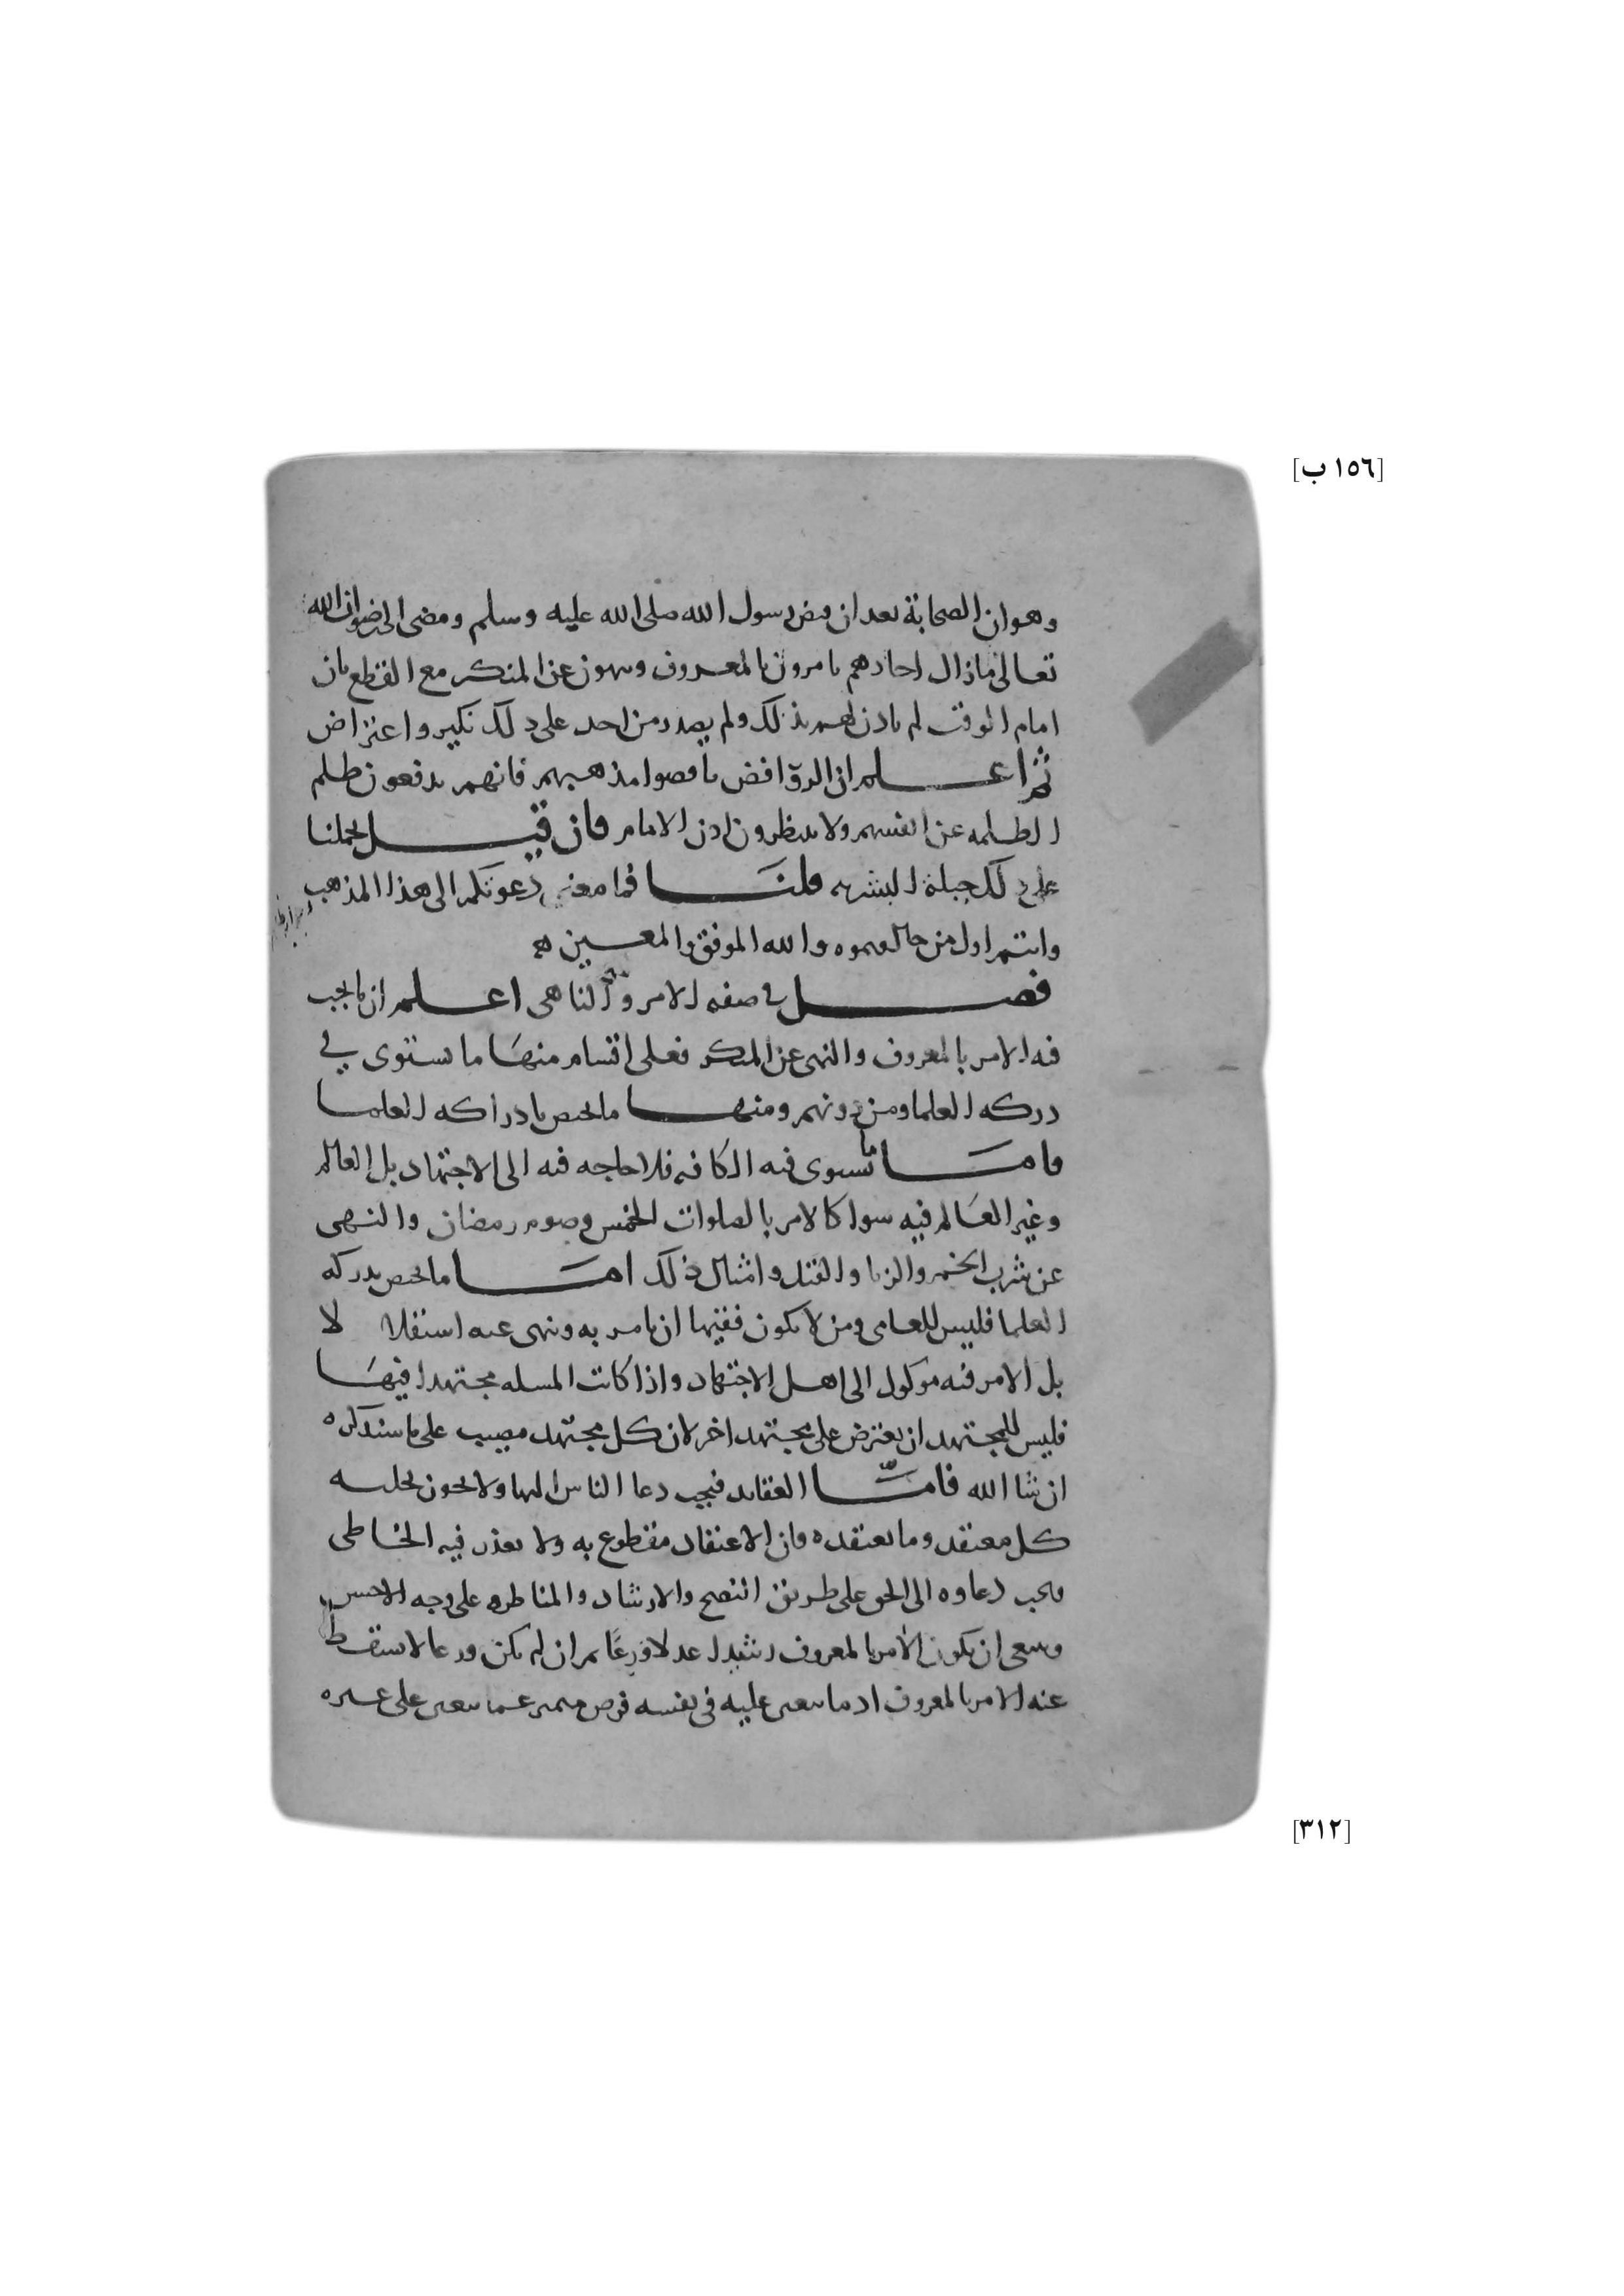 [١٥٦ ب]
وهو ان الصحابة بعد ان قبض رسول الله صلى الله عليه وسلم ومضى الى رضوان الله
تعالى ما زال احادهم يامرون بالمعروف وينهون عن المنكر مع القطع بان
امام الوقت لم ياذن لهم بذلك ولم يصدر من احد على ذلك نكير واعتراض
ثم اعلم ان الروافض ناقضوا مذهبهم فانهم يدفعون ظلم
الظلمه عن انفسهم ولا ينتظرون اذن الامام فان قيل يحملنا
على ذلك جبلة البشريه قلنا فما معنى دعوتكم الى هذا المذهب
وانتم اول من والله الموفق والمعين
فصل في صفه الامر والناهي اعلم ان ما يجب
فيه الامر بالمعروف والنهي عن المنكر فعلى اقسام منها ما يستوى في
دركه العلما ومن دونهم ومنها ما يختص بادراكه العلما
فاما ما يستوى فيه الكافه فلا حاجه فيه الى الاجتهاد بل العالم
وغير العالم فيه سوا كالامر بالصلوات الخمس وصوم رمضان والنهي
عن شرب الخمر والزنا والقتل وامثال ذلك اما ما يختص بدركه
العلما فليس للعامى ومن لا يكون فقيها ان يامر به وينهى عنه استقلالا
بل الامر فيه موكول الى اهل الاجتهاد واذا كانت المسله مجتهدا فيها
فليس للمجتهد ان يعترض على مجتهد اخر لان كل مجتهد مصيب على ما سنذكره
ان شا الله فاما العقايد فيجب دعا الناس اليها ولا يجوز تخليه
كل معتقد وما يعتقده فان الاعتقاد مقطوع به ولا يعذر فيه الخاطى
فيجب دعاوه الى الحق على طريق النصح والارشاد والمناظره على وجه الاحسن
وينبغي ان يكون الامر بالمعروف رشيدا عدلا ورعا ثم ان لم يكن ورعا لا يسقط
عنه الامر بالمعروف اذ ما يتعين عليه في نفسه فرض متميز عما يتعين على غيره
[٣١٢]